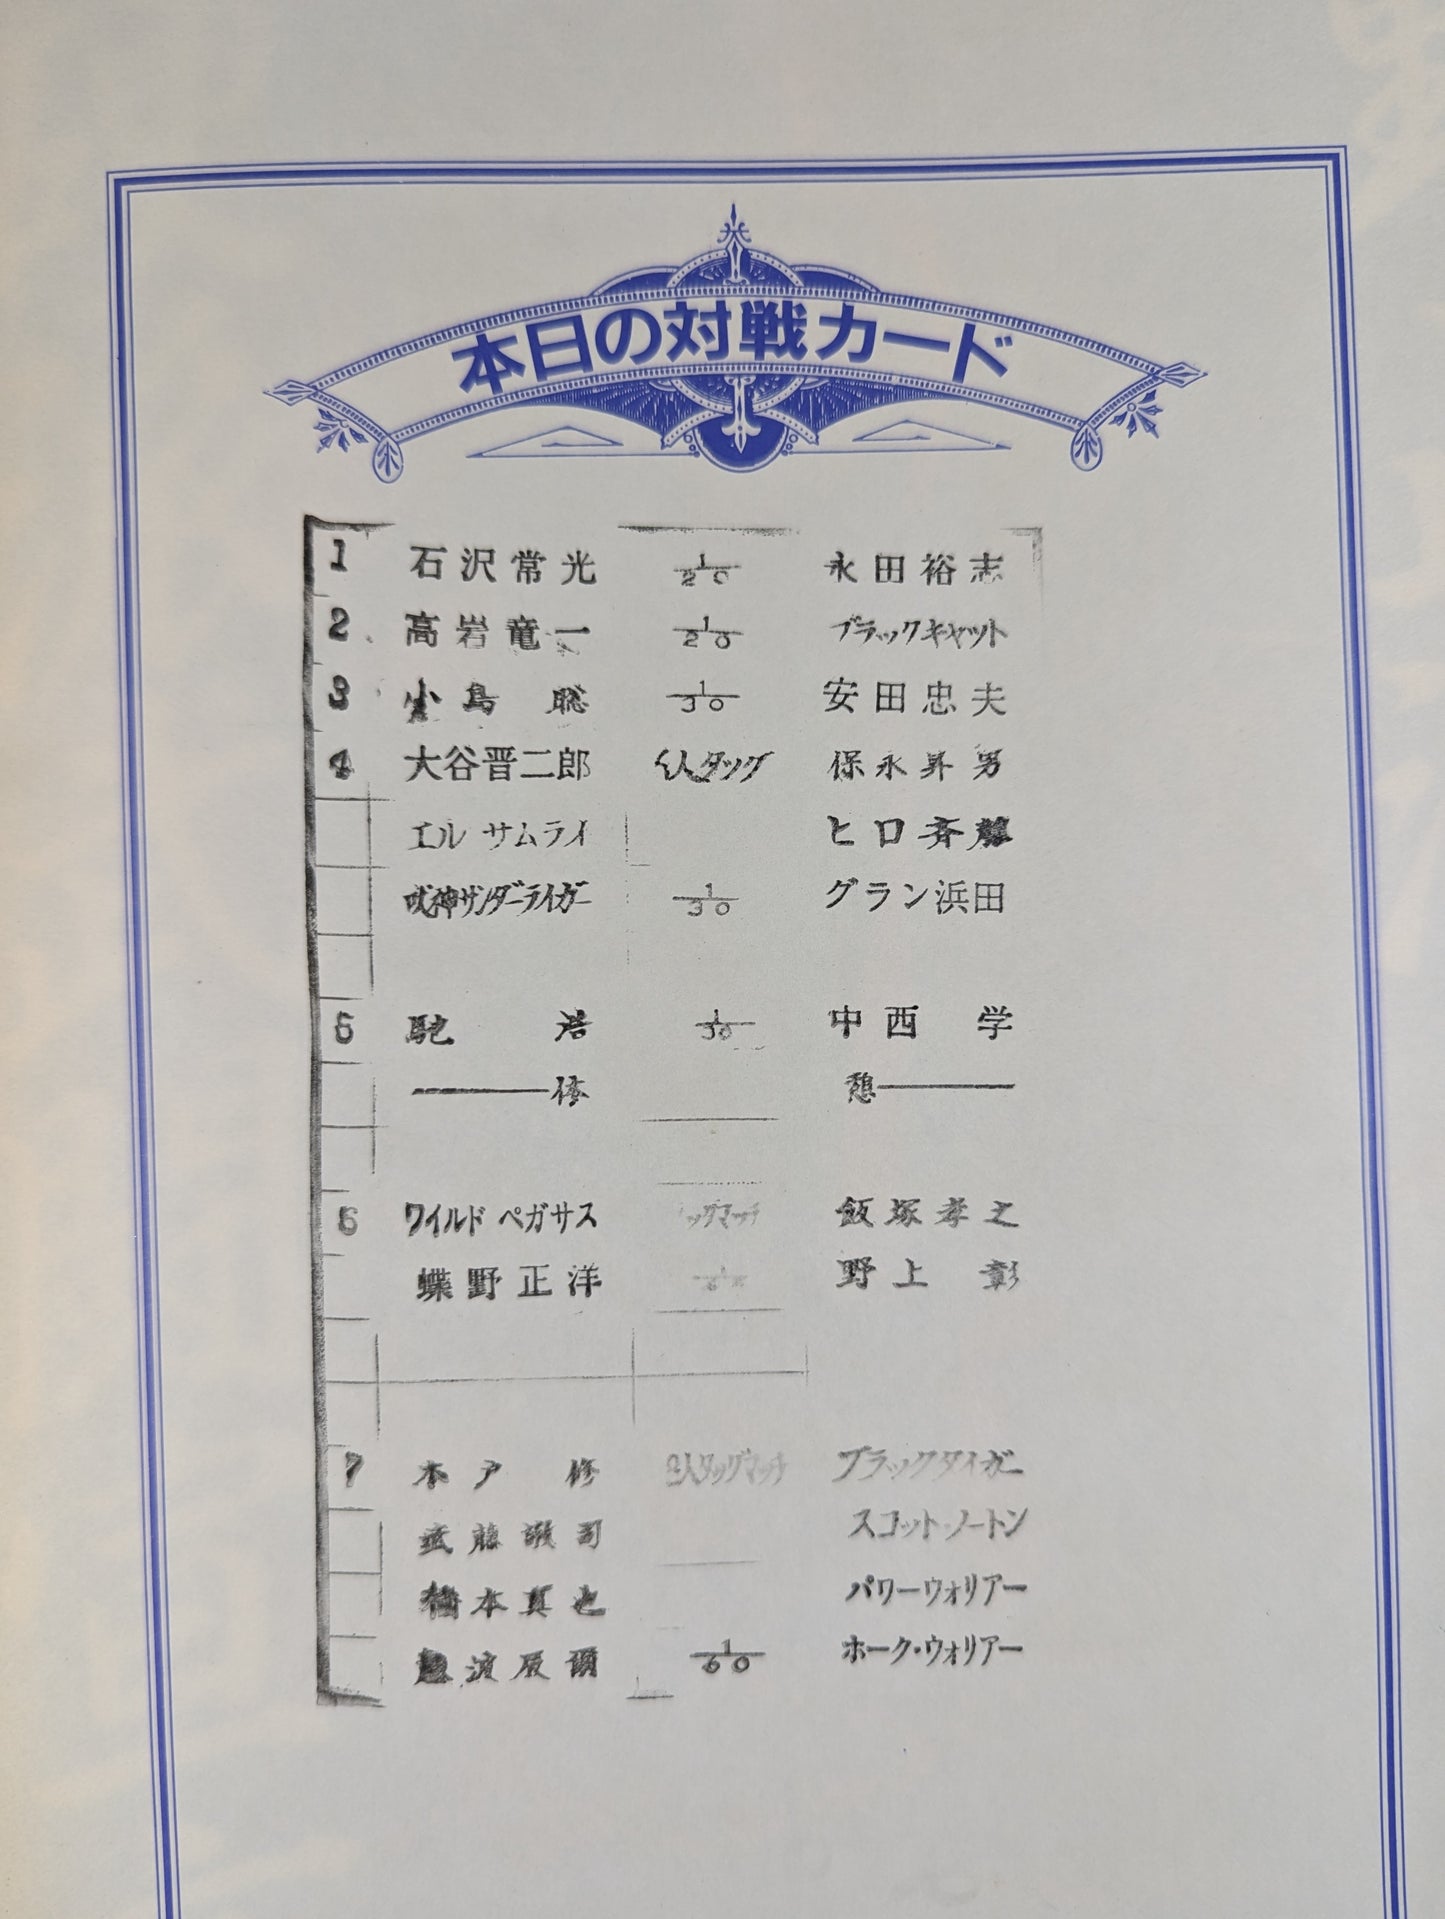 本日の対戦カード
1 石沢常光 1/20 永田裕志
2 高岩竜一 1/20 ブラックキャット
3 小島 聡 1/30 安田忠夫
4 大谷晋二郎 6人タッグ 保永昇男
エル サムライ ヒロ斉藤
獣神サンダーライガー 1/30 グラン浜田
5 馳 浩 1/30 中西 学
休 憩
6 ワイルド ペガサス タッグマッチ 飯塚孝之
蝶野正洋 野上 彰
7 木戸 修 8人タッグマッチ ブラックタイガー
武藤敬司 スコット・ノートン
橋本真也 パワーウォリアー
波辰爾 1/60 ホーク・ウォリアー